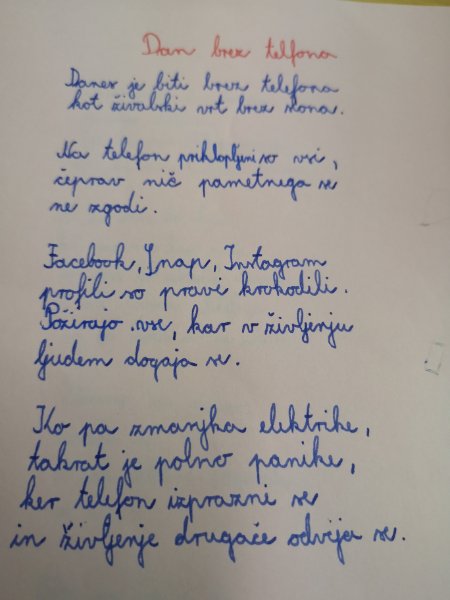 Dan brez telfona
Danes je biti brez telefona
kot živalski vrt brez slona.
Na telefon priklopljeni so vsi,
čeprav nič pametnega se
ne zgodi.
Facebook, Snap, Instagram
profili so pravi krokodili.
Požirajo vse, kar v življenju
ljudem dogaja se.
Ko pa zmanjka elektrike,
takrat je polno panike,
ker telefon izprazni se
in življenje drugače odvija se.